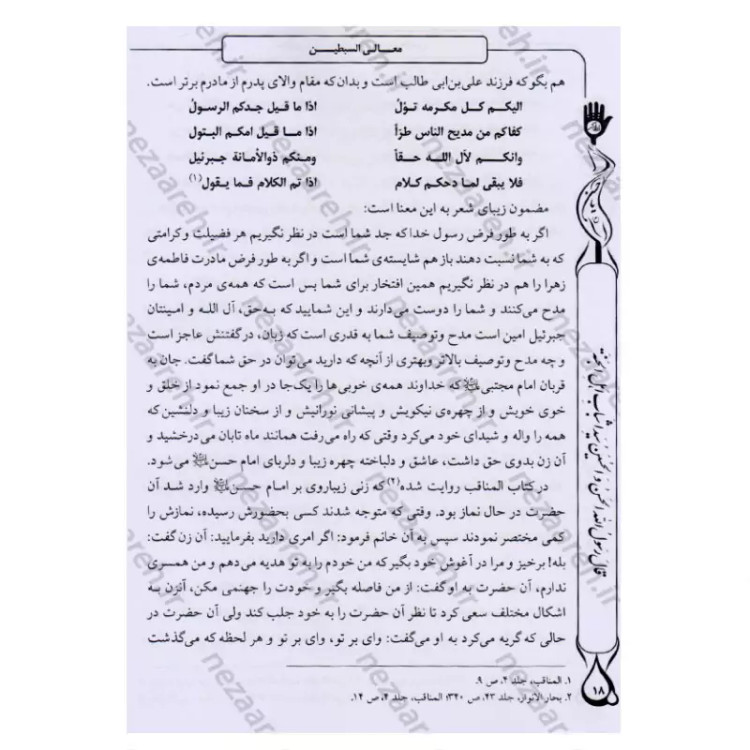 معالی السبطین
هم بگو که فرزند علی‌بن‌ابی طالب است و بدان که مقام والای پدرم از مادرم برتر است.
الیکم کل مکرمه تؤلُ اذا ما قیل جدکم الرسولُ
کفاکم من مدیح الناس طرّاً اذا ما قیل امکم البتول
وانکم لآل الله حقاً ومنکم ذوالأمانة جبرئیل
فلا یبقی لمادحکم کلام اذا تم الکلام فما یقول(۱)
مضمون زیبای شعر به این معنا است:
اگر به طور فرض رسول خدا که جد شما است در نظر نگیریم هر فضیلت و کرامتی
که به شما نسبت دهند باز هم شایسته‌ی شما است و اگر به طور فرض مادرت فاطمه‌ی
زهرا را هم در نظر نگیریم همین افتخار برای شما بس است که همه‌ی مردم، شما را
مدح می‌کنند و شما را دوست می‌دارند و این شمایید که به‌حق، آل الله و امینتان
جبرئیل امین است مدح وتوصیف شما به قدری است که زبان، در گفتنش عاجز است
و چه مدح وتوصیف بالاتر وبهتری از آنچه که دارید می‌توان در حق شما گفت. جان به
قربان امام مجتبی که خداوند همه‌ی خوبی‌ها را یک‌جا در او جمع نمود از خلق و
خوی خویش و از چهره‌ی نیکویش و پیشانی نورانیش و از سخنان زیبا و دلنشین که
همه را واله و شیدای خود می‌کرد وقتی که راه می‌رفت همانند ماه تابان می‌درخشید و
آن زن بدوی حق داشت، عاشق و دلباخته چهره زیبا و دلربای امام حسن می‌شود.
در کتاب المناقب روایت شده(۲) که زنی زیباروی بر امام حسن وارد شد آن
حضرت در حال نماز بود. وقتی که متوجه شدند کسی بحضورش رسیده، نمازش را
کمی مختصر نمودند سپس به آن خانم فرمود: اگر امری دارید بفرمایید: آن زن گفت:
بله! برخیز و مرا در آغوش خود بگیر که من خودم را به تو هدیه می‌دهم و من همسری
ندارم، آن حضرت به او گفت: از من فاصله بگیر و خودت را جهنمی مکن، آنزن به
اشکال مختلف سعی کرد تا نظر آن حضرت را به خود جلب کند ولی آن حضرت در
حالی که گریه می‌کرد به او می‌گفت: وای بر تو، وای بر تو و هر لحظه که می‌گذشت
۱. المناقب، جلد ۴، ص ۹.
۲. بحار الانوار، جلد ۴۳، ص ۳۴۰؛ المناقب، جلد ۴، ص ۱۴.
۱۸
قال رسول الله الحسن و الحسین سیدا شباب اهل الجنة
nezaareh.ir